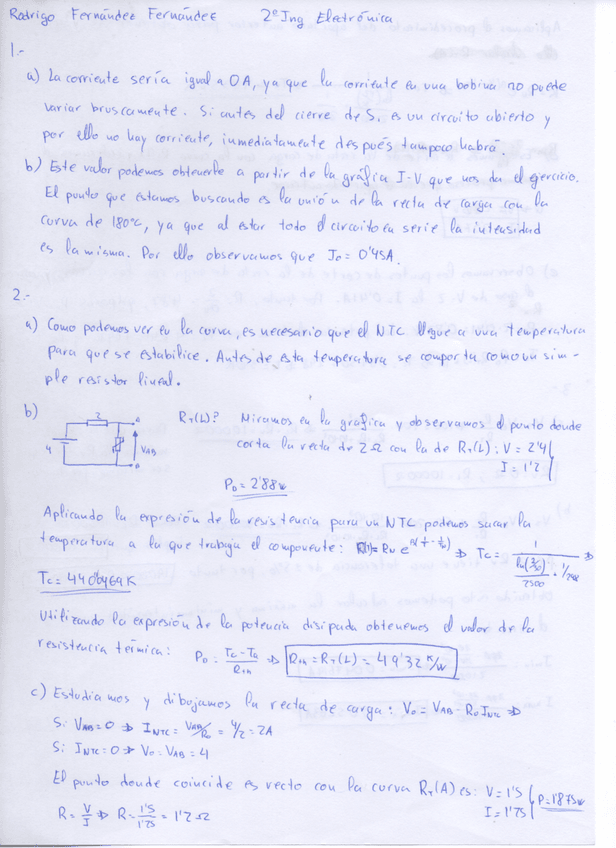 Rodrigo Fernández Fernández 2º Ing Electrónica
1.-
a) La corriente sería igual a 0A, ya que la corriente en una bobina no puede
variar bruscamente. Si antes del cierre de S, es un circuito abierto y
por ello no hay corriente, inmediatamente después tampoco habrá.
b) Este valor podemos obtenerle a partir de la gráfica I-V que nos da el ejercicio.
El punto que estamos buscando es la unión de la recta de carga con la
curva de 180ºC, ya que al estar todo el circuito en serie la intensidad
es la misma. Por ello observamos que I₀ = 0'45A.
2.-
a) Como podemos ver en la curva, es necesario que el NTC llegue a una temperatura
para que se estabilice. Antes de esta temperatura se comporta como un sim-
ple resistor lineal.
b) R_T(L)? Miramos en la gráfica y observamos el punto donde
2 A
corta la recta de 2Ω con la de R_T(L): V = 2'4
4 V_AB
I = 1'2
B
P_D = 2'88w
Aplicando la expresión de la resistencia para un NTC podemos sacar la
temperatura a la que trabaja el componente: Tc = 1
2500
Tc = 440'6969 K
Utilizando la expresión de la potencia disipada obtenemos el valor de la
resistencia térmica: P_D = Tc - Ta / R_th ⇒ R_th = R_T(L) = 49'32 K/W
c) Estudiamos y dibujamos la recta de carga: V₀ = V_AB · R₀ I_NTC ⇒
Si V_AB = 0 ⇒ I_NTC = V_AB/R₀ = 4/2 = 2A
Si I_NTC = 0 ⇒ V₀ = V_AB = 4
El punto donde coincide es recta con la curva R_T(A) es: V = 1'5
I = 1'25 P = 1'875w
R = V/I ⇒ R = 1'5/1'25 = 1'2 Ω